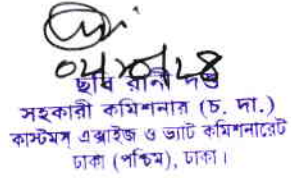 ছবি রানী দত্ত
সহকারী কমিশনার (চ. দা.)
কাস্টমস্ এক্সাইজ ও ভ্যাট কমিশনারেট
ঢাকা (পশ্চিম), ঢাকা।